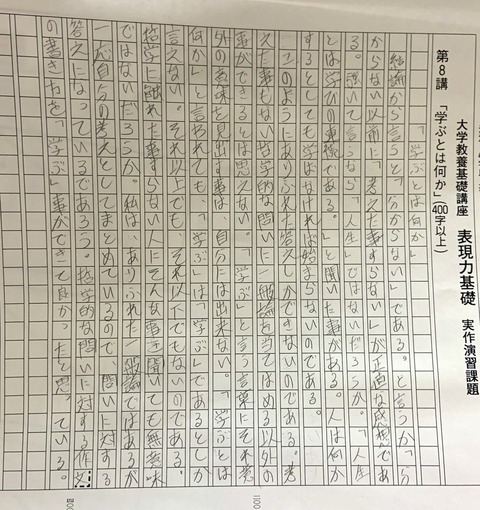 大学教養基礎講座 表現力基礎 実作演習課題
第8講 「学ぶとは何か」(400字以上)
「学ぶとは何か」
結論から言うと「分からない」である。と言うか「分
からない以前に「考えた事すらない」が正直な感想であ
る。強いて言うなら「人生」ではないだろうか。「人生
とは学びの連続である。」と聞いた事がある。人は何か
するとしても学ばなければ始まらないのである。
このようにありふれた答えしかできないのである。考
えた事もない哲学的な問いに一般論を当てはめる以外の
事ができるとは思えない。「学ぶ」と言う言葉にそれ以
外の意味を見出す事は、自分には出来ない。「学ぶとは
何か」と言われても、「学ぶ」は「学ぶ」であるとしか
言えない。それ以上でも、それ以下でもないのである。
哲学に触れた事すらない人にそんな事を聞いても無意味
ではないだろうか。私は、ありふれた一般論ではあるが
一応自分の考えとしてまとめているので、問いに対する
答えになっているであろう。哲学的な問いに対する作文
の書き方を「学ぶ」事ができて良かったと思っている。